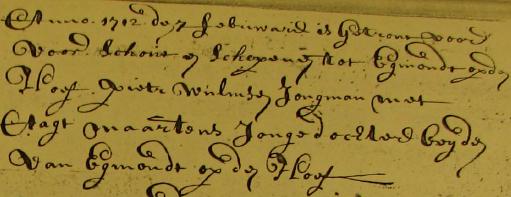 Anno 1712 den 7 Febriuwarij is Getrout voor
voor Schout en Schepenen tot Egmondt op den
Hoef Pieter Willemsen Jongman met
Aagt Maartens Jonge dochter beyde
van Egmondt op den Hoef